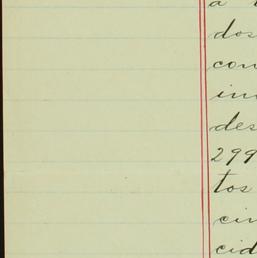 a
dos
con
in
des
299
tos
cin
cid